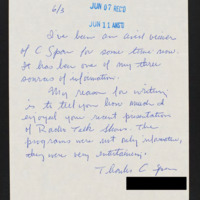 6/3
JUN 07 REC'D
JUN 11 ANS'D
I've been an avid viewer
of C Span for some time now.
It has been one of my three
sources of information.
My reason for writing
is to tell you how much I
enjoyed your recent presentation
of Radio Talk shows. The
programs were not only informative,
they were very entertaining.
Thanks C Span